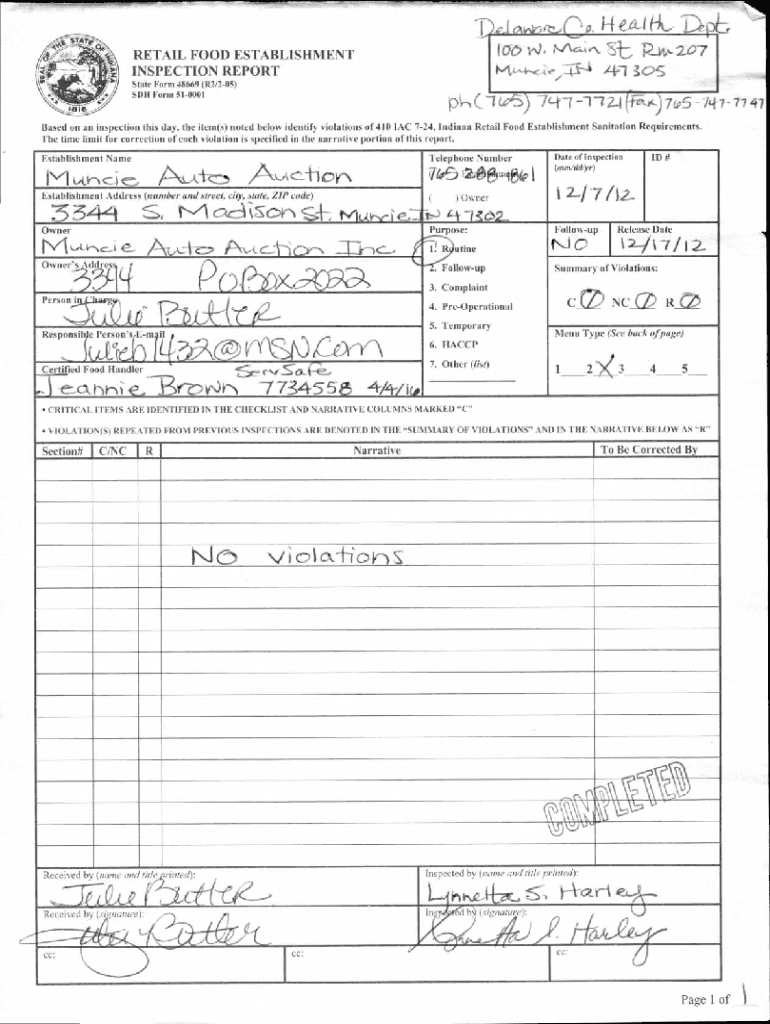 Delaware Co. Health Dept.
100 W. Main St Rm 207
Muncie, IN 47305
ph (765) 747-7721 (fax) 765-747-7747
SEAL OF THE STATE OF INDIANA
1816
RETAIL FOOD ESTABLISHMENT
INSPECTION REPORT
State Form 48669 (R2/2-05)
SDH Form 51-0001
Based on an inspection this day, the item(s) noted below identify violations of 410 IAC 7-24, Indiana Retail Food Establishment Sanitation Requirements.
The time limit for correction of each violation is specified in the narrative portion of this report.
Establishment Name
Muncie Auto Auction
Telephone Number
765 288 4861
( ) Owner
Date of Inspection
(mm/dd/yr)
12/7/12
ID #
Establishment Address (number and street, city, state, ZIP code)
3344 S. Madison St. Muncie, IN 47302
Owner
Muncie Auto Auction Inc.
Purpose:
1. Routine
2. Follow-up
3. Complaint
4. Pre-Operational
5. Temporary
6. HACCP
7. Other (list)
Follow-up
NO
Release Date
12/17/12
Owner's Address
3344 PO Box 2022
Summary of Violations:
C 0 NC 0 R 0
Person in Charge
Julie Butler
Responsible Person's E-mail
Julieb1432@MSN.com
Menu Type (See back of page)
1 2 X 3 4 5
Certified Food Handler
ServSafe
Jeannie Brown 7734558 4/4/16
• CRITICAL ITEMS ARE IDENTIFIED IN THE CHECKLIST AND NARRATIVE COLUMNS MARKED "C"
• VIOLATION(S) REPEATED FROM PREVIOUS INSPECTIONS ARE DENOTED IN THE "SUMMARY OF VIOLATIONS" AND IN THE NARRATIVE BELOW AS "R"
Section# C/NC R Narrative To Be Corrected By
No violations
COMPLETED
Received by (name and title printed):
Julie Butler
Inspected by (name and title printed):
Lynnetta S. Harley
Received by (signature):
Julie Butler
Inspected by (signature):
Lynnetta S. Harley
cc: cc: cc:
Page 1 of 1